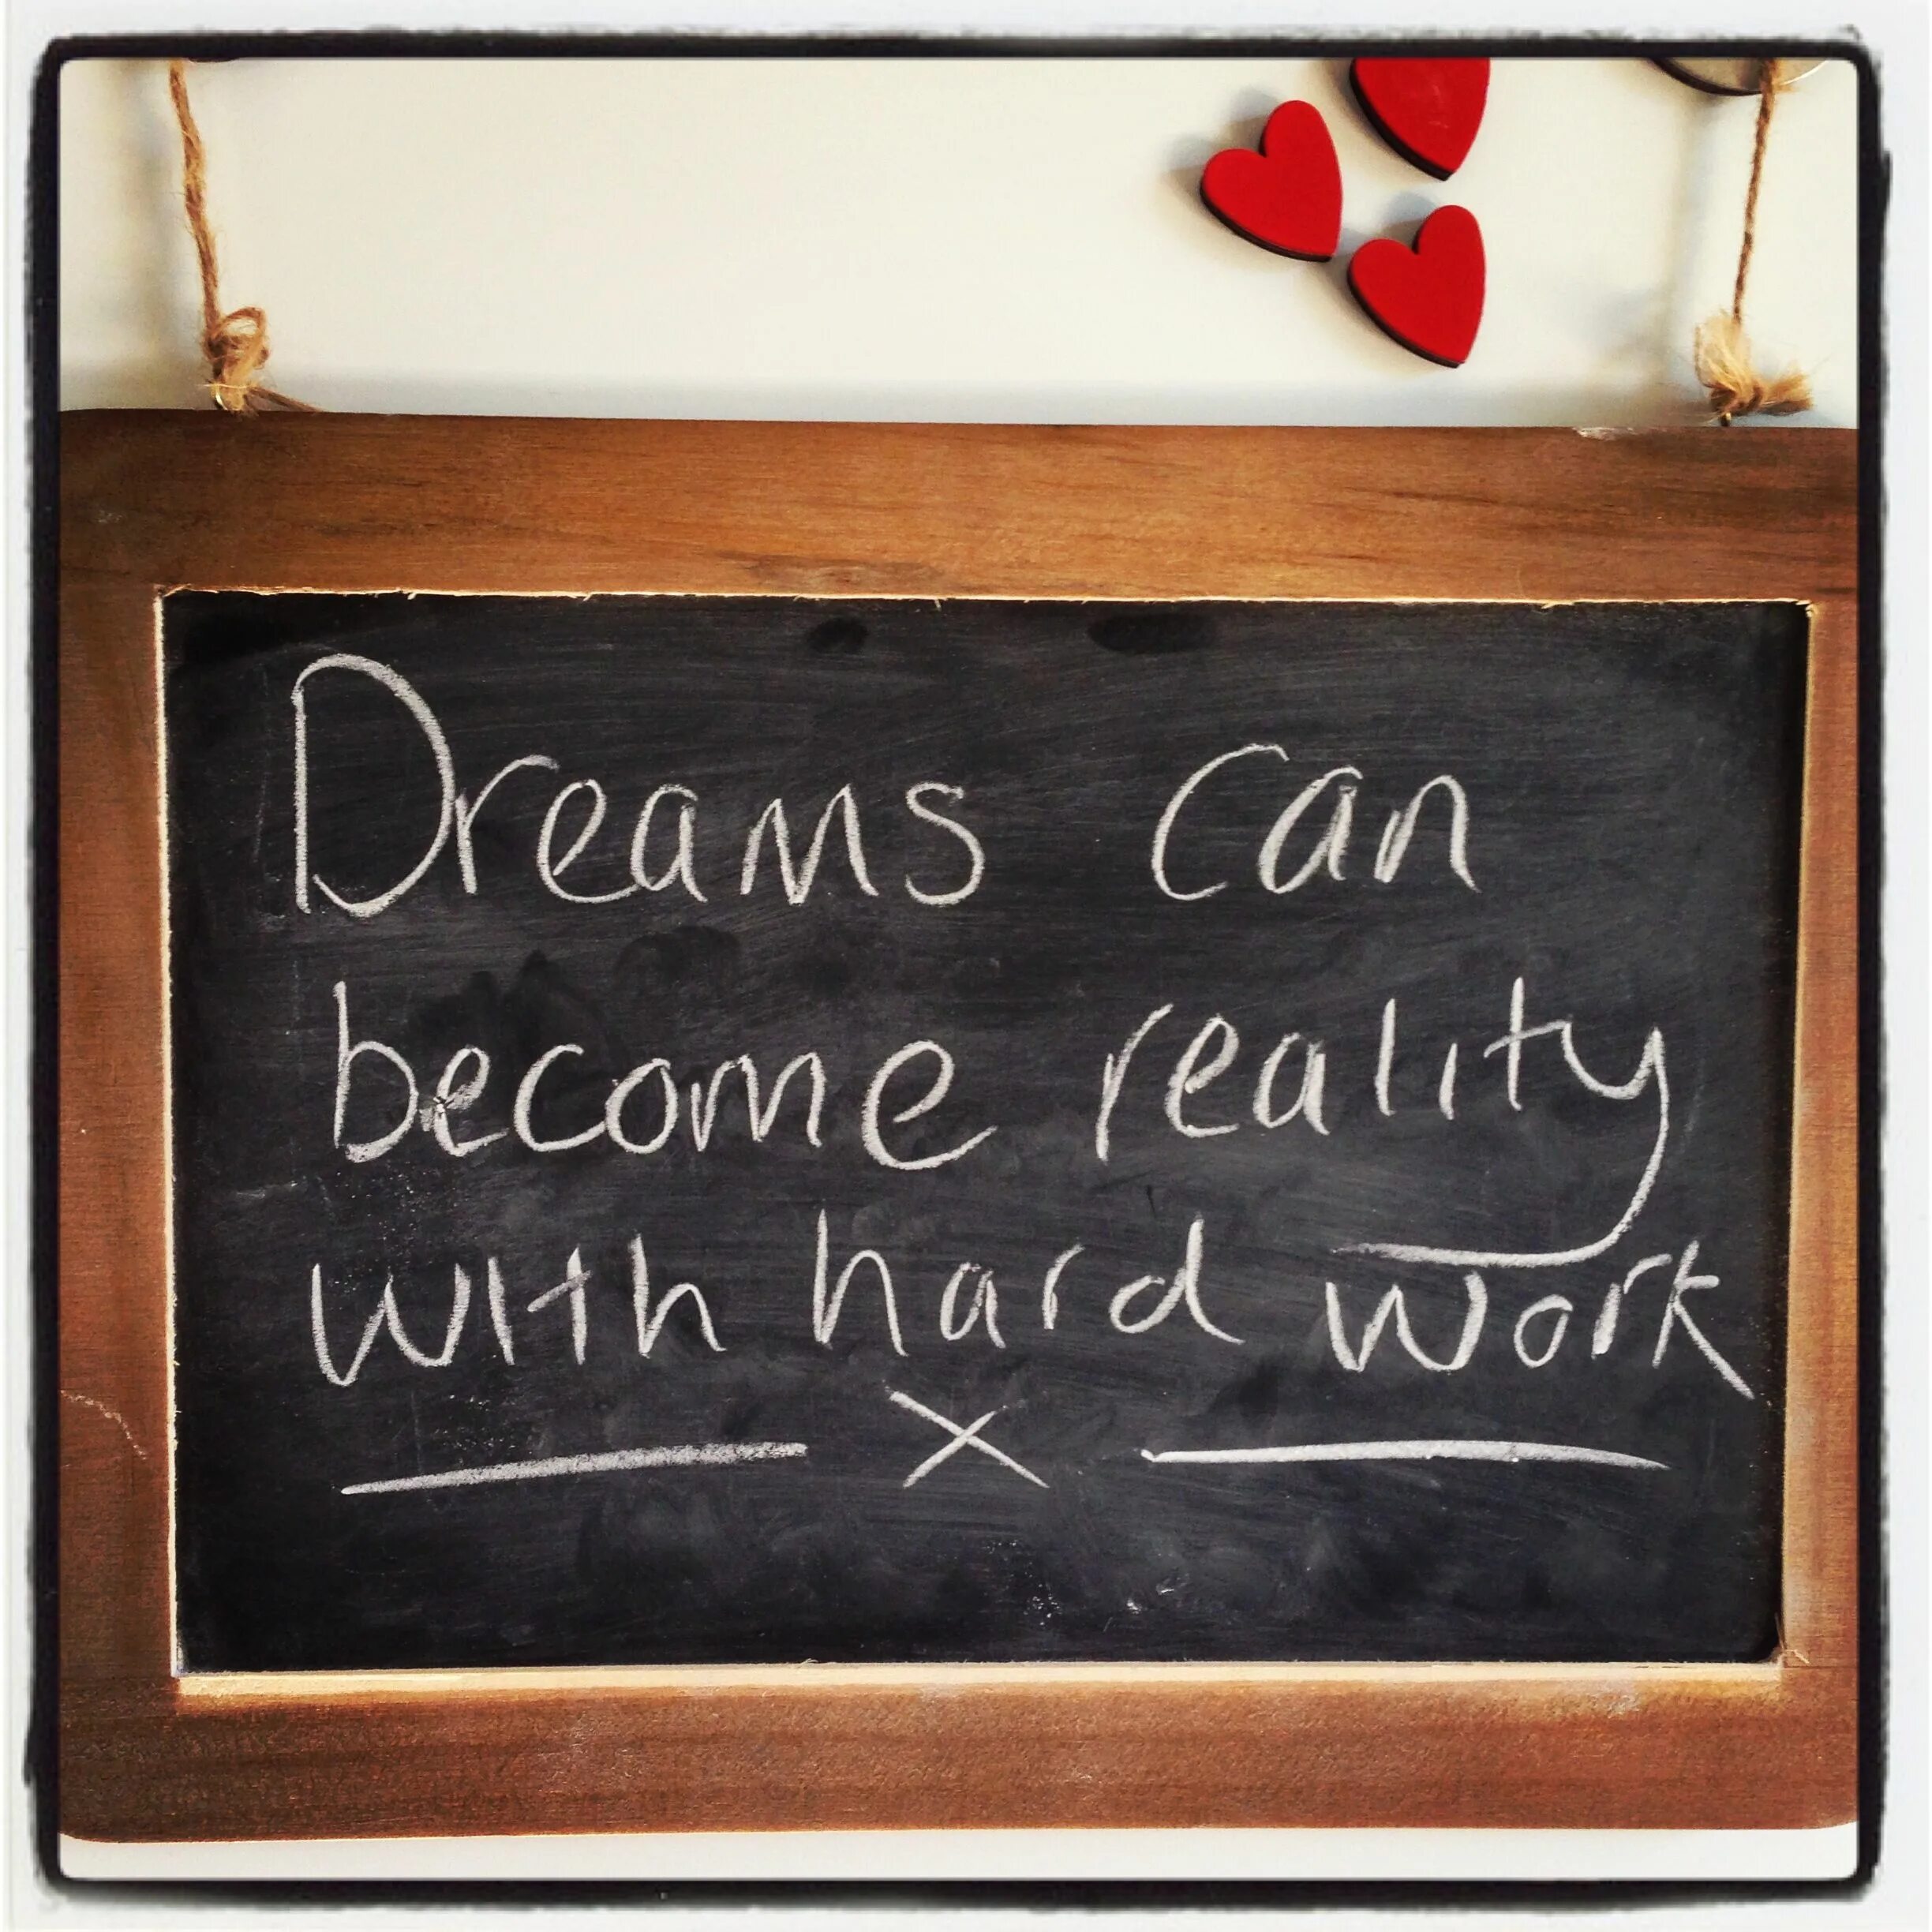 Dreams can
become reality
with hard work
x